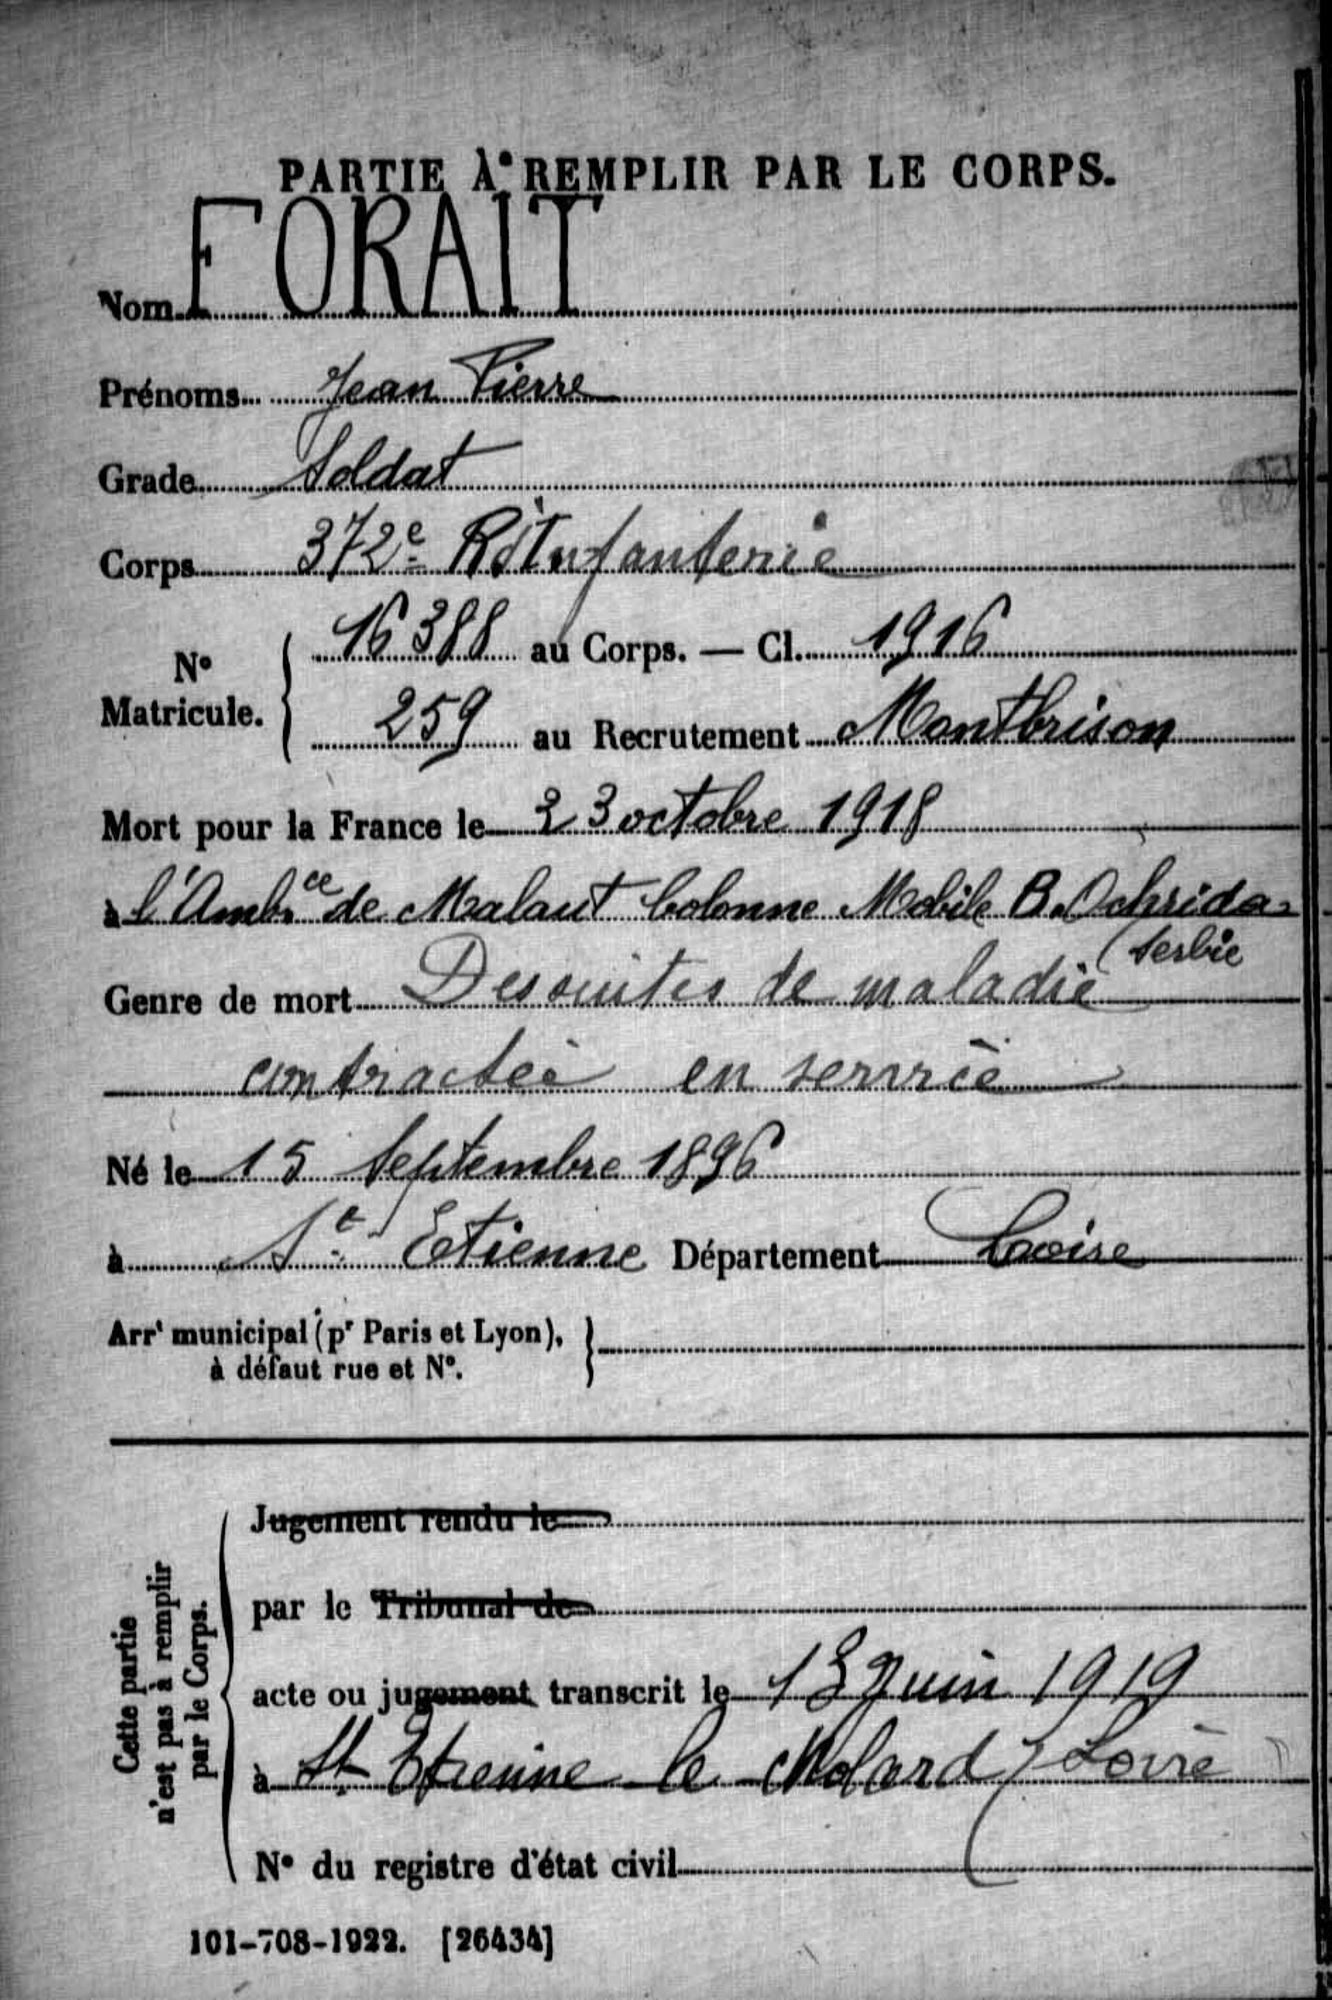 PARTIE À REMPLIR PAR LE CORPS.
Nom FORAIT
Prénoms Jean Pierre
Grade Soldat
Corps 372e R. d'Infanterie
N° Matricule. 16388 au Corps. — Cl. 1916
259 au Recrutement Montbrison
Mort pour la France le 23 octobre 1918
à l'Ambce de Malaut Colonne Mobile B. Ochrida
(Serbie
Genre de mort Des suites de maladie
contractée en service
Né le 15 Septembre 1896
à St Etienne Département Loire
Arrt municipal (pr Paris et Lyon),
à défaut rue et N°.
Jugement rendu le
par le Tribunal de
acte ou jugement transcrit le 13 Juin 1919
à St Etienne le Molard (Loire)
N° du registre d'état civil
Cette partie
n'est pas à remplir
par le Corps.
101-708-1922. [26434]